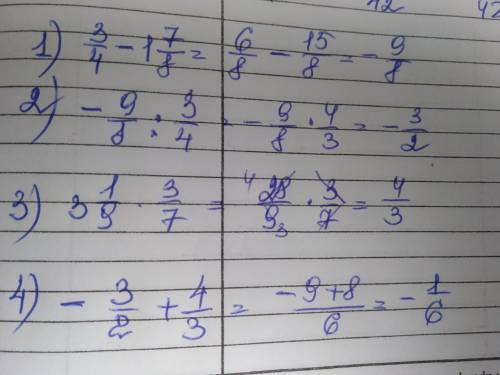 12 42
1) 3/4 - 1 7/8 = 6/8 - 15/8 = - 9/8
2) - 9/8 : 3/4 = - 9/8 · 4/3 = - 3/2
3) 3 1/9 · 3/7 = 4 28/9 3 · 3/7 = 4/3
4) - 3/2 + 4/3 = -9+8/6 = - 1/6